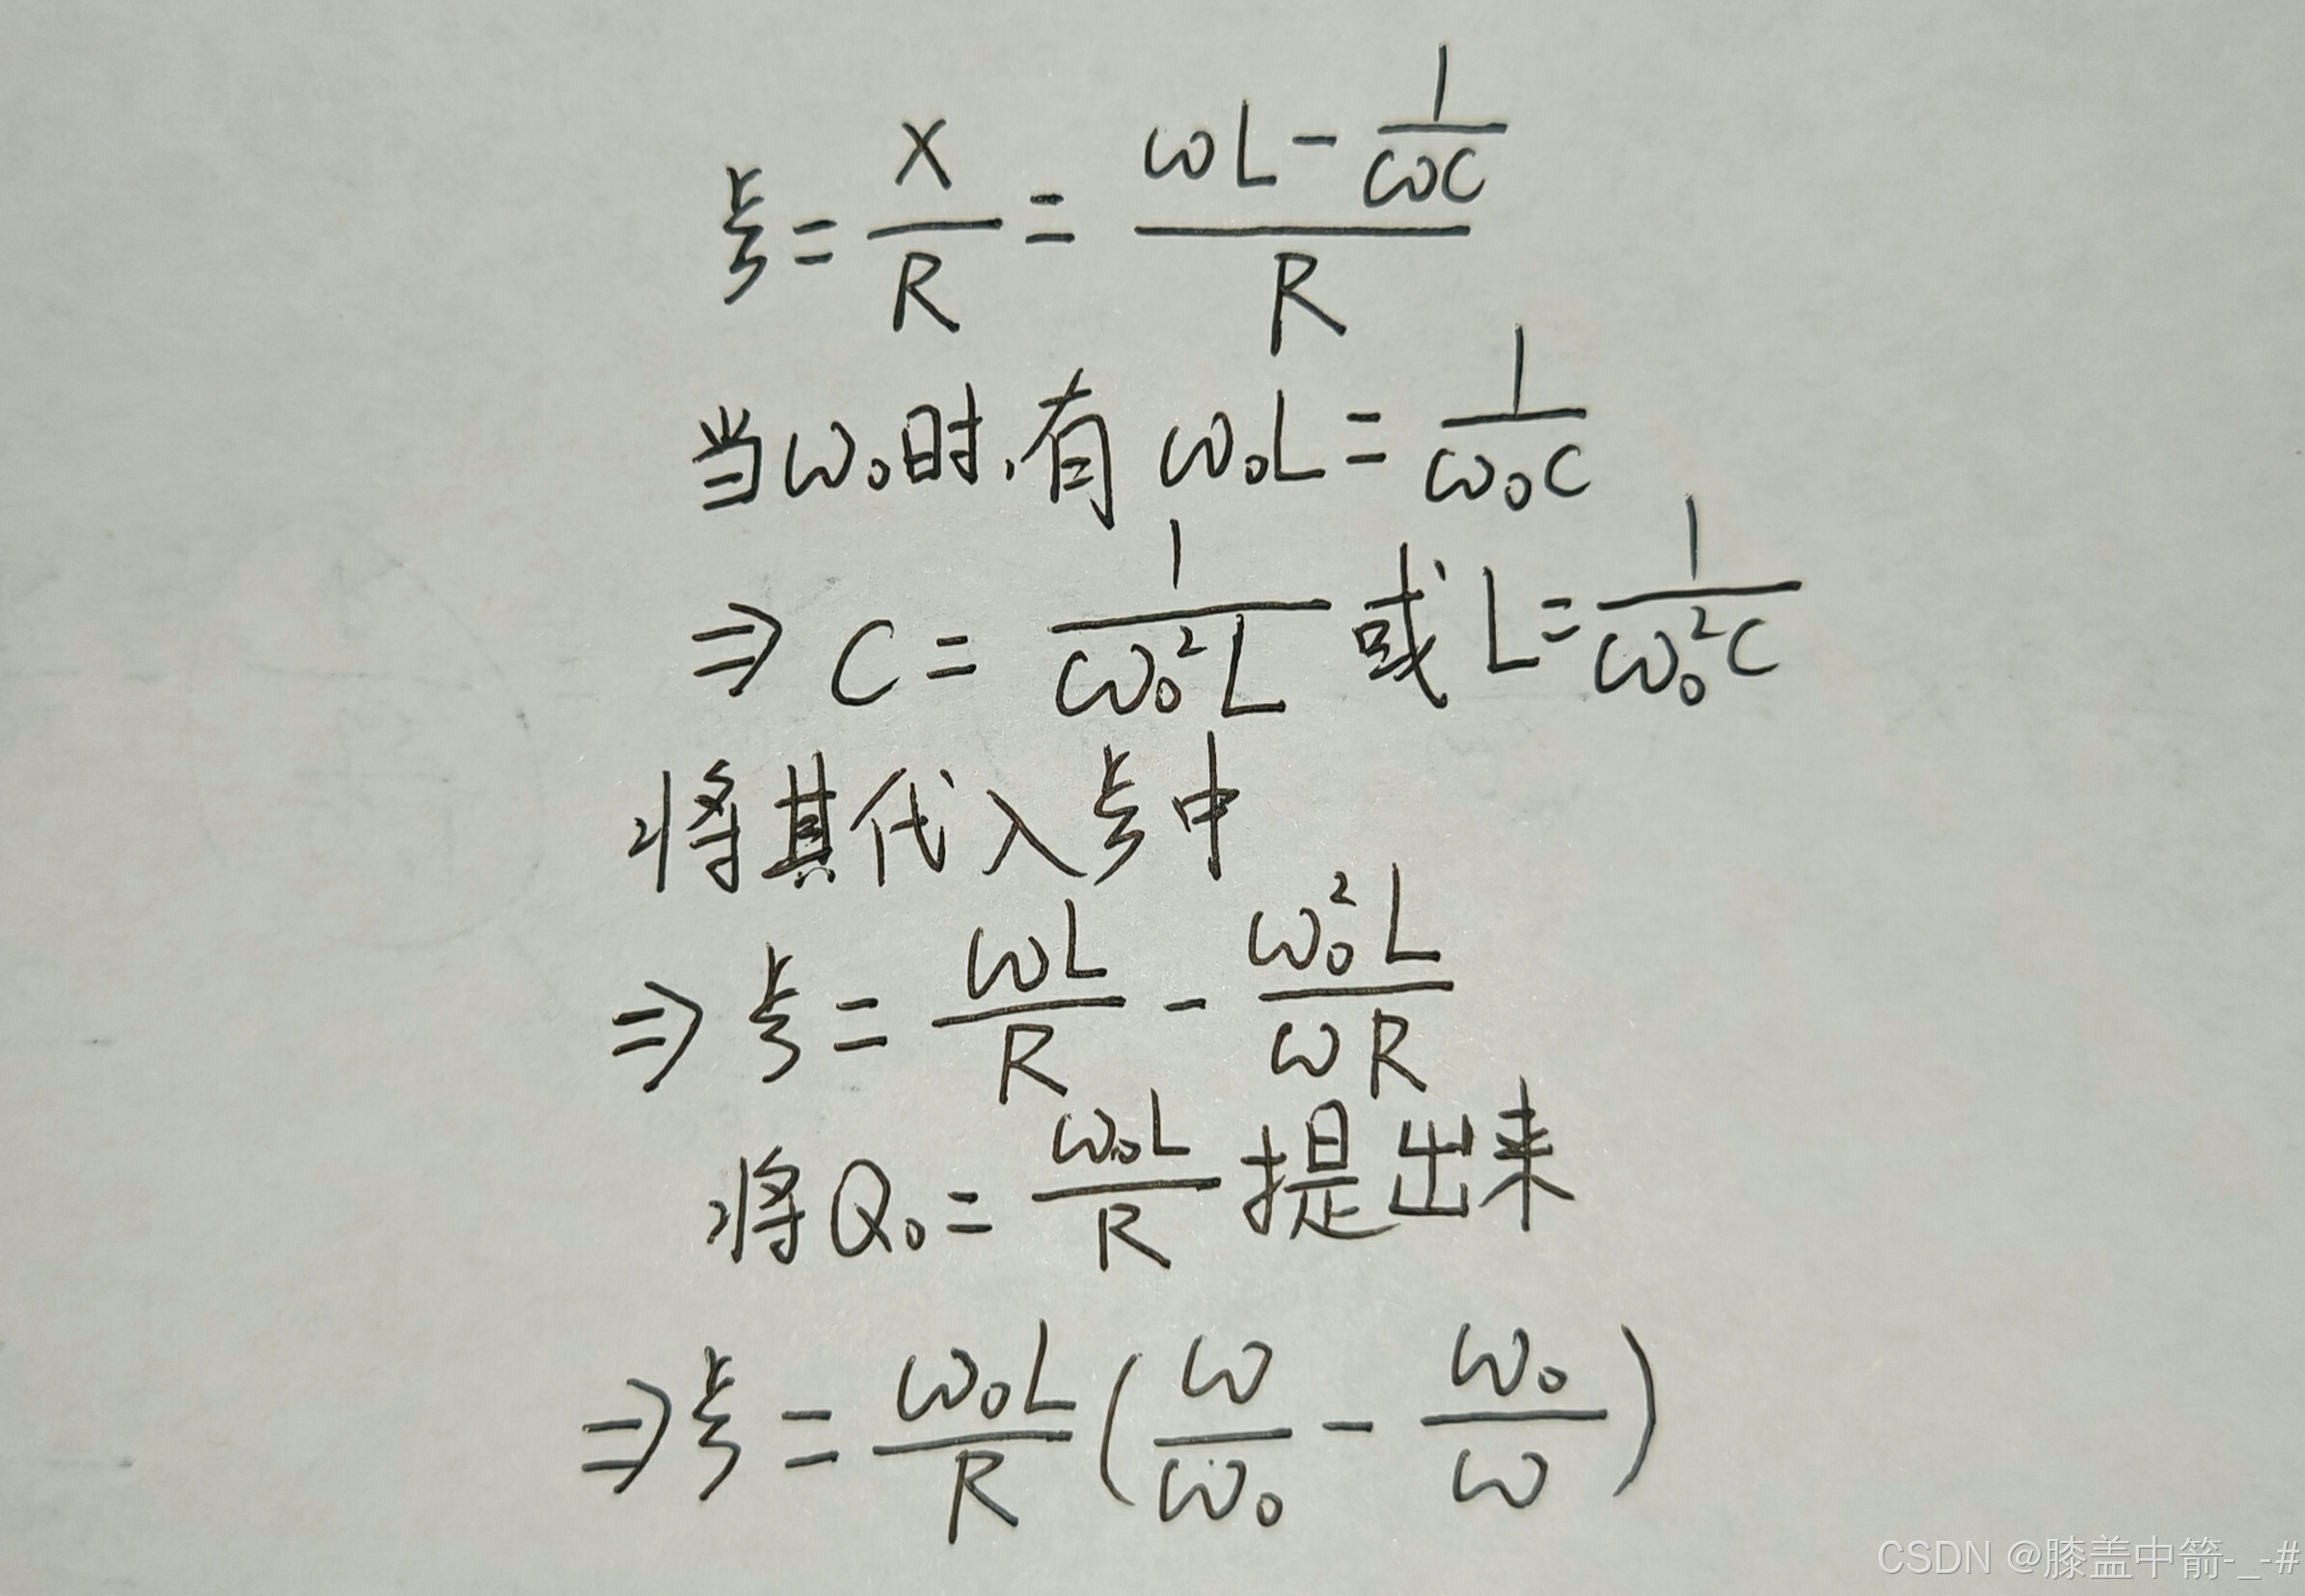 ξ = X/R = (ωL - 1/(ωC))/R
当ω₀时,有 ω₀L = 1/(ω₀C)
⇒ C = 1/(ω₀²L) 或 L = 1/(ω₀²C)
将其代入ξ中
⇒ ξ = ωL/R - ω₀²L/(ωR)
将Q₀ = ω₀L/R 提出来
⇒ ξ = ω₀L/R (ω/ω₀ - ω₀/ω)
CSDN @膝盖中箭-_-#